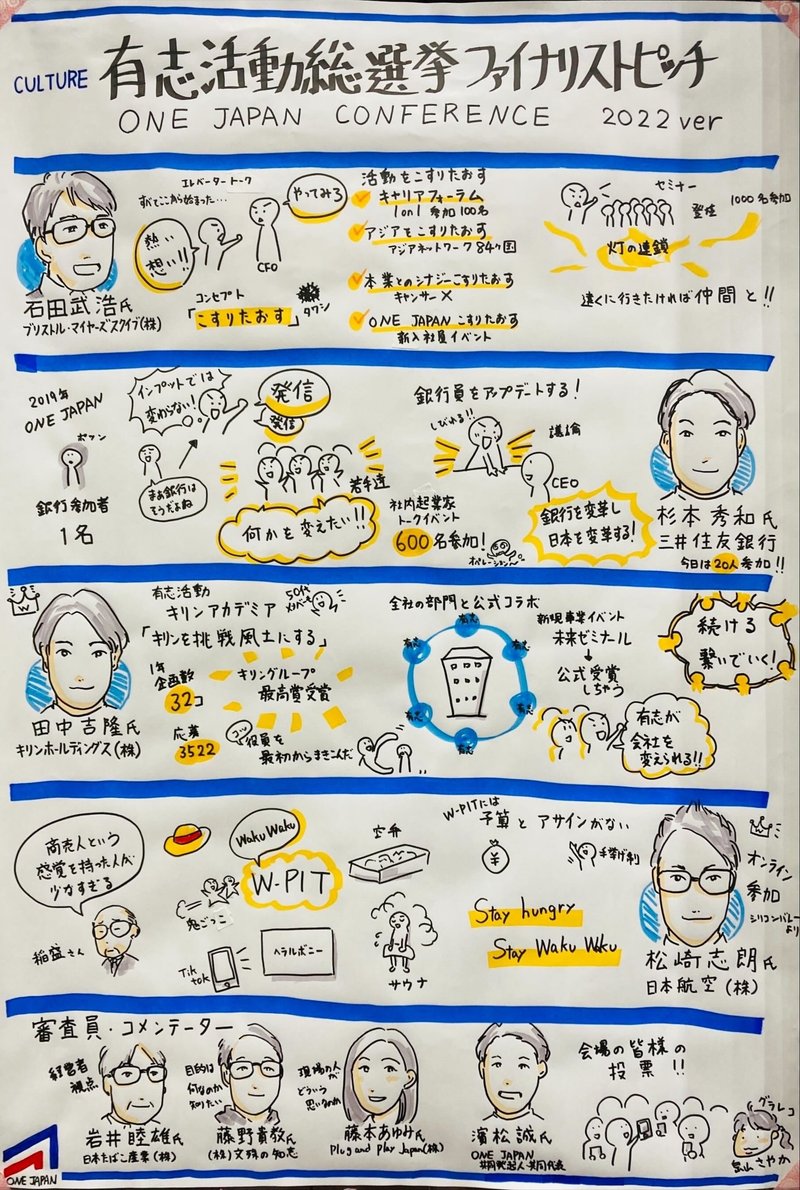 CULTURE 有志活動総選挙ファイナリストピッチ
ONE JAPAN CONFERENCE 2022 ver
エレベータートーク
すべてここから始まった…
熱い
想い!!
やってみろ
CFO
コンセプト
「こすりたおす」
タワシ
石田武浩氏
ブリストル・マイヤーズスクイブ(株)
活動をこすりたおす
キャリアフォーラム
1on1 参加100名
アジアをこすりたおす
アジアネットワーク 84ヶ国
本業とのシナジーこすりたおす
キャンサーX
ONE JAPAN こすりたおす
新入社員イベント
セミナー
登壇
1000名参加
灯の連鎖
遠くに行きたければ仲間と!!
2019年
ONE JAPAN
ポツン
銀行参加者
1名
インプットでは
変わらない!
まぁ銀行は
そうだよね
発信
発信
若手達
何かを変えたい!!
銀行員をアップデートする!
しびれる!!
議論
CEO
社内起業家
トークイベント
600名参加!
オペレーション
銀行を変革し
日本を変革する!
杉本秀和氏
三井住友銀行
今日は20人参加!!
田中吉隆氏
キリンホールディングス(株)
有志活動
キリンアカデミア
50代
メンバーも
「キリンを挑戦風土にする」
1年
企画数
32コ
キリングループ
最高賞受賞
応募
3522
コツ
役員を
最初からまきこんだ
全社の部門と公式コラボ
有志
有志
有志
有志
有志
有志
新規事業イベント
未来ゼミナール
公式受賞
しちゃう
続ける
繋いでいく!
有志が
会社を
変えられる!!
商売人という
感覚を持った人が
少なすぎる
稲盛さん
Waku Waku
W-PIT
鬼ごっこ
Tik
tok
ヘラルボニー
空弁
サウナ
W-PITには
予算とアサインがない
手挙げ制
Stay hungry
Stay Waku Waku
オンライン
参加
シリコンバレー
より
松崎志朗氏
日本航空(株)
審査員・コメンテーター
経営者
視点
岩井睦雄氏
日本たばこ産業(株)
目的は
何なのか
知りたい
藤野貴教氏
(株)文殊の知恵
現場の人が
どういう
思いなのか
藤本あゆみ氏
Plug and Play Japan(株)
濱松誠氏
ONE JAPAN
共同発起人・共同代表
会場の皆様の
投票!!
グラレコ
さやか
ONE JAPAN